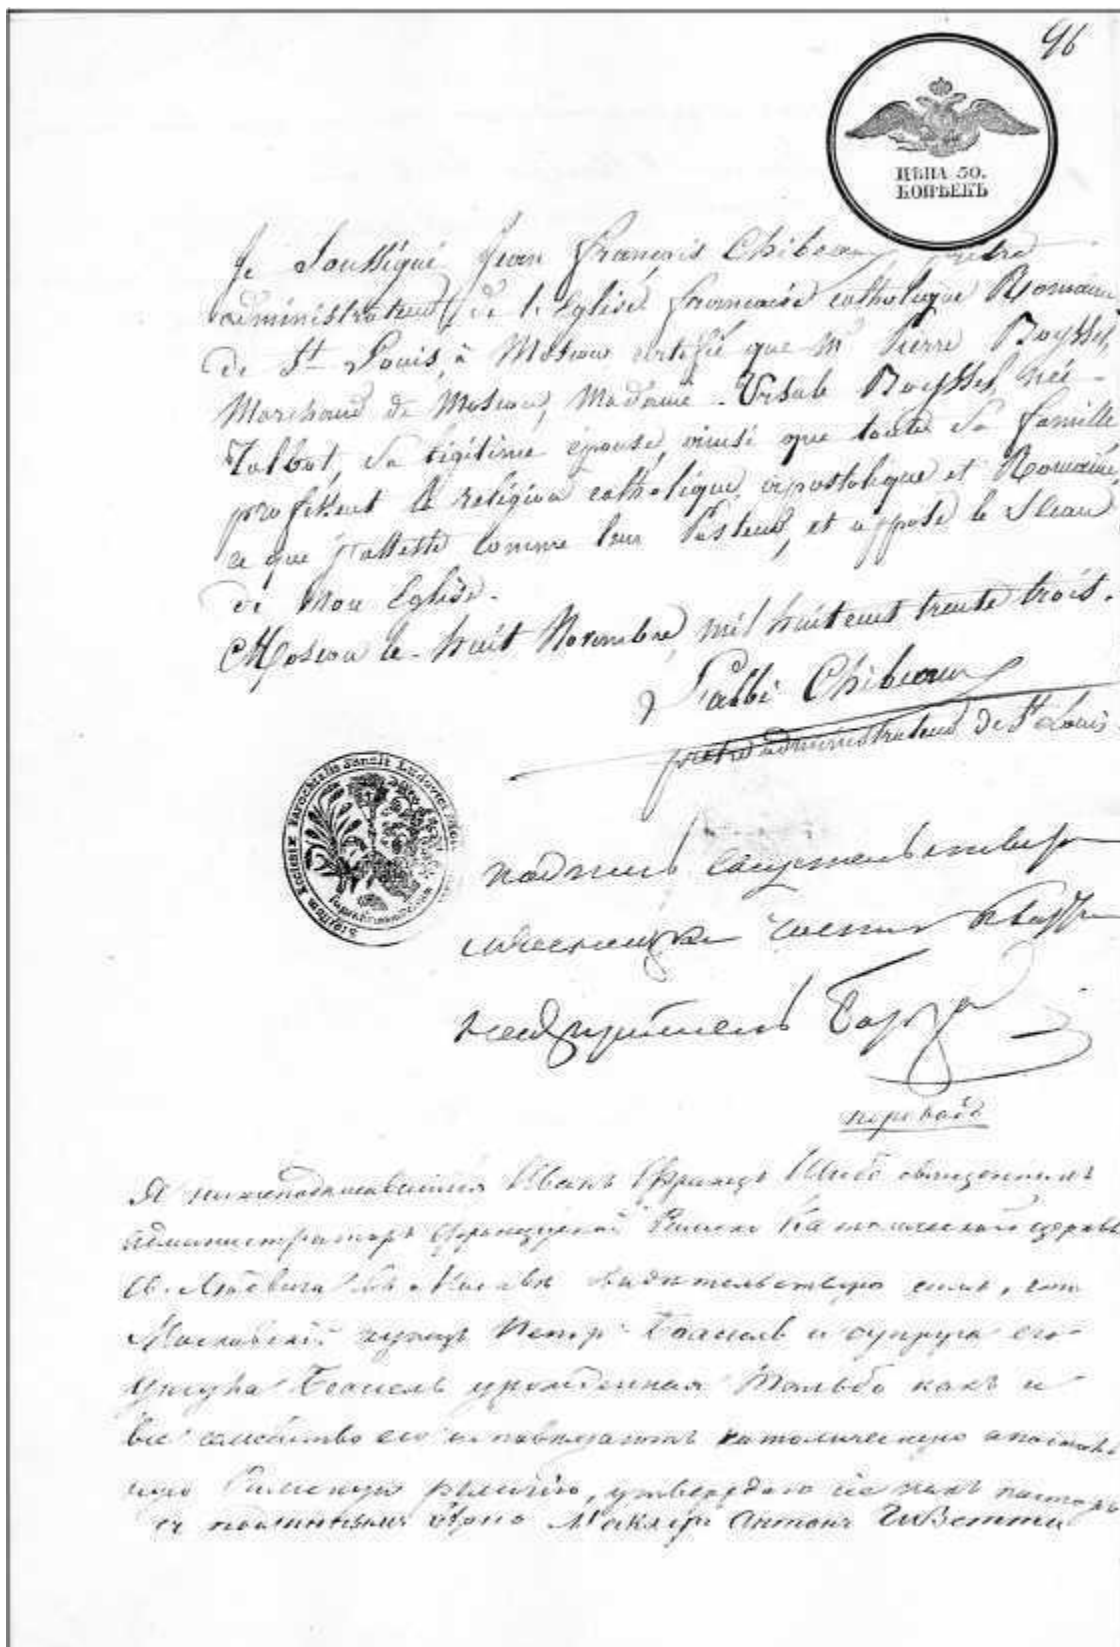 96
ЦѢНА 50.
КОПѢЕКЪ
Je Soussigné Jean François Chibeaux prêtre
administrateur de l'Eglise française catholique Romaine
de St Louis, à Moscou certifie que Mr Pierre Boyssel,
Marchand de Moscou, Madame Ursule Boyssel, née
Talbot, sa légitime épouse, ainsi que toute sa famille
professent la religion catholique, apostolique et Romaine,
ce que j'atteste comme leur Pasteur, et appose le Sceau
de Mon Eglise.
Moscou le huit Novembre, mil huit cent trente trois.
L'abbé Chibeaux
prêtre administrateur de St Louis.
Sigillum Ecclesiæ Parochialis Sancti Ludovici
подпись
части
переводъ
Я нижеподписавшийся Иванъ Францъ Шибо священникъ
администраторъ французской Римско Католической церкви
Св. Людвига въ Москвѣ свидетельствую симъ, что
Московский купецъ Петръ Боассель и супруга его
Урсула Боассель урожденная Тальбо какъ и
все семейство его исповедаютъ католическую апостоль
скую Римскую религию, утверждаю сіе какъ пастырь
съ подлиннымъ верно Маклеръ Антонъ